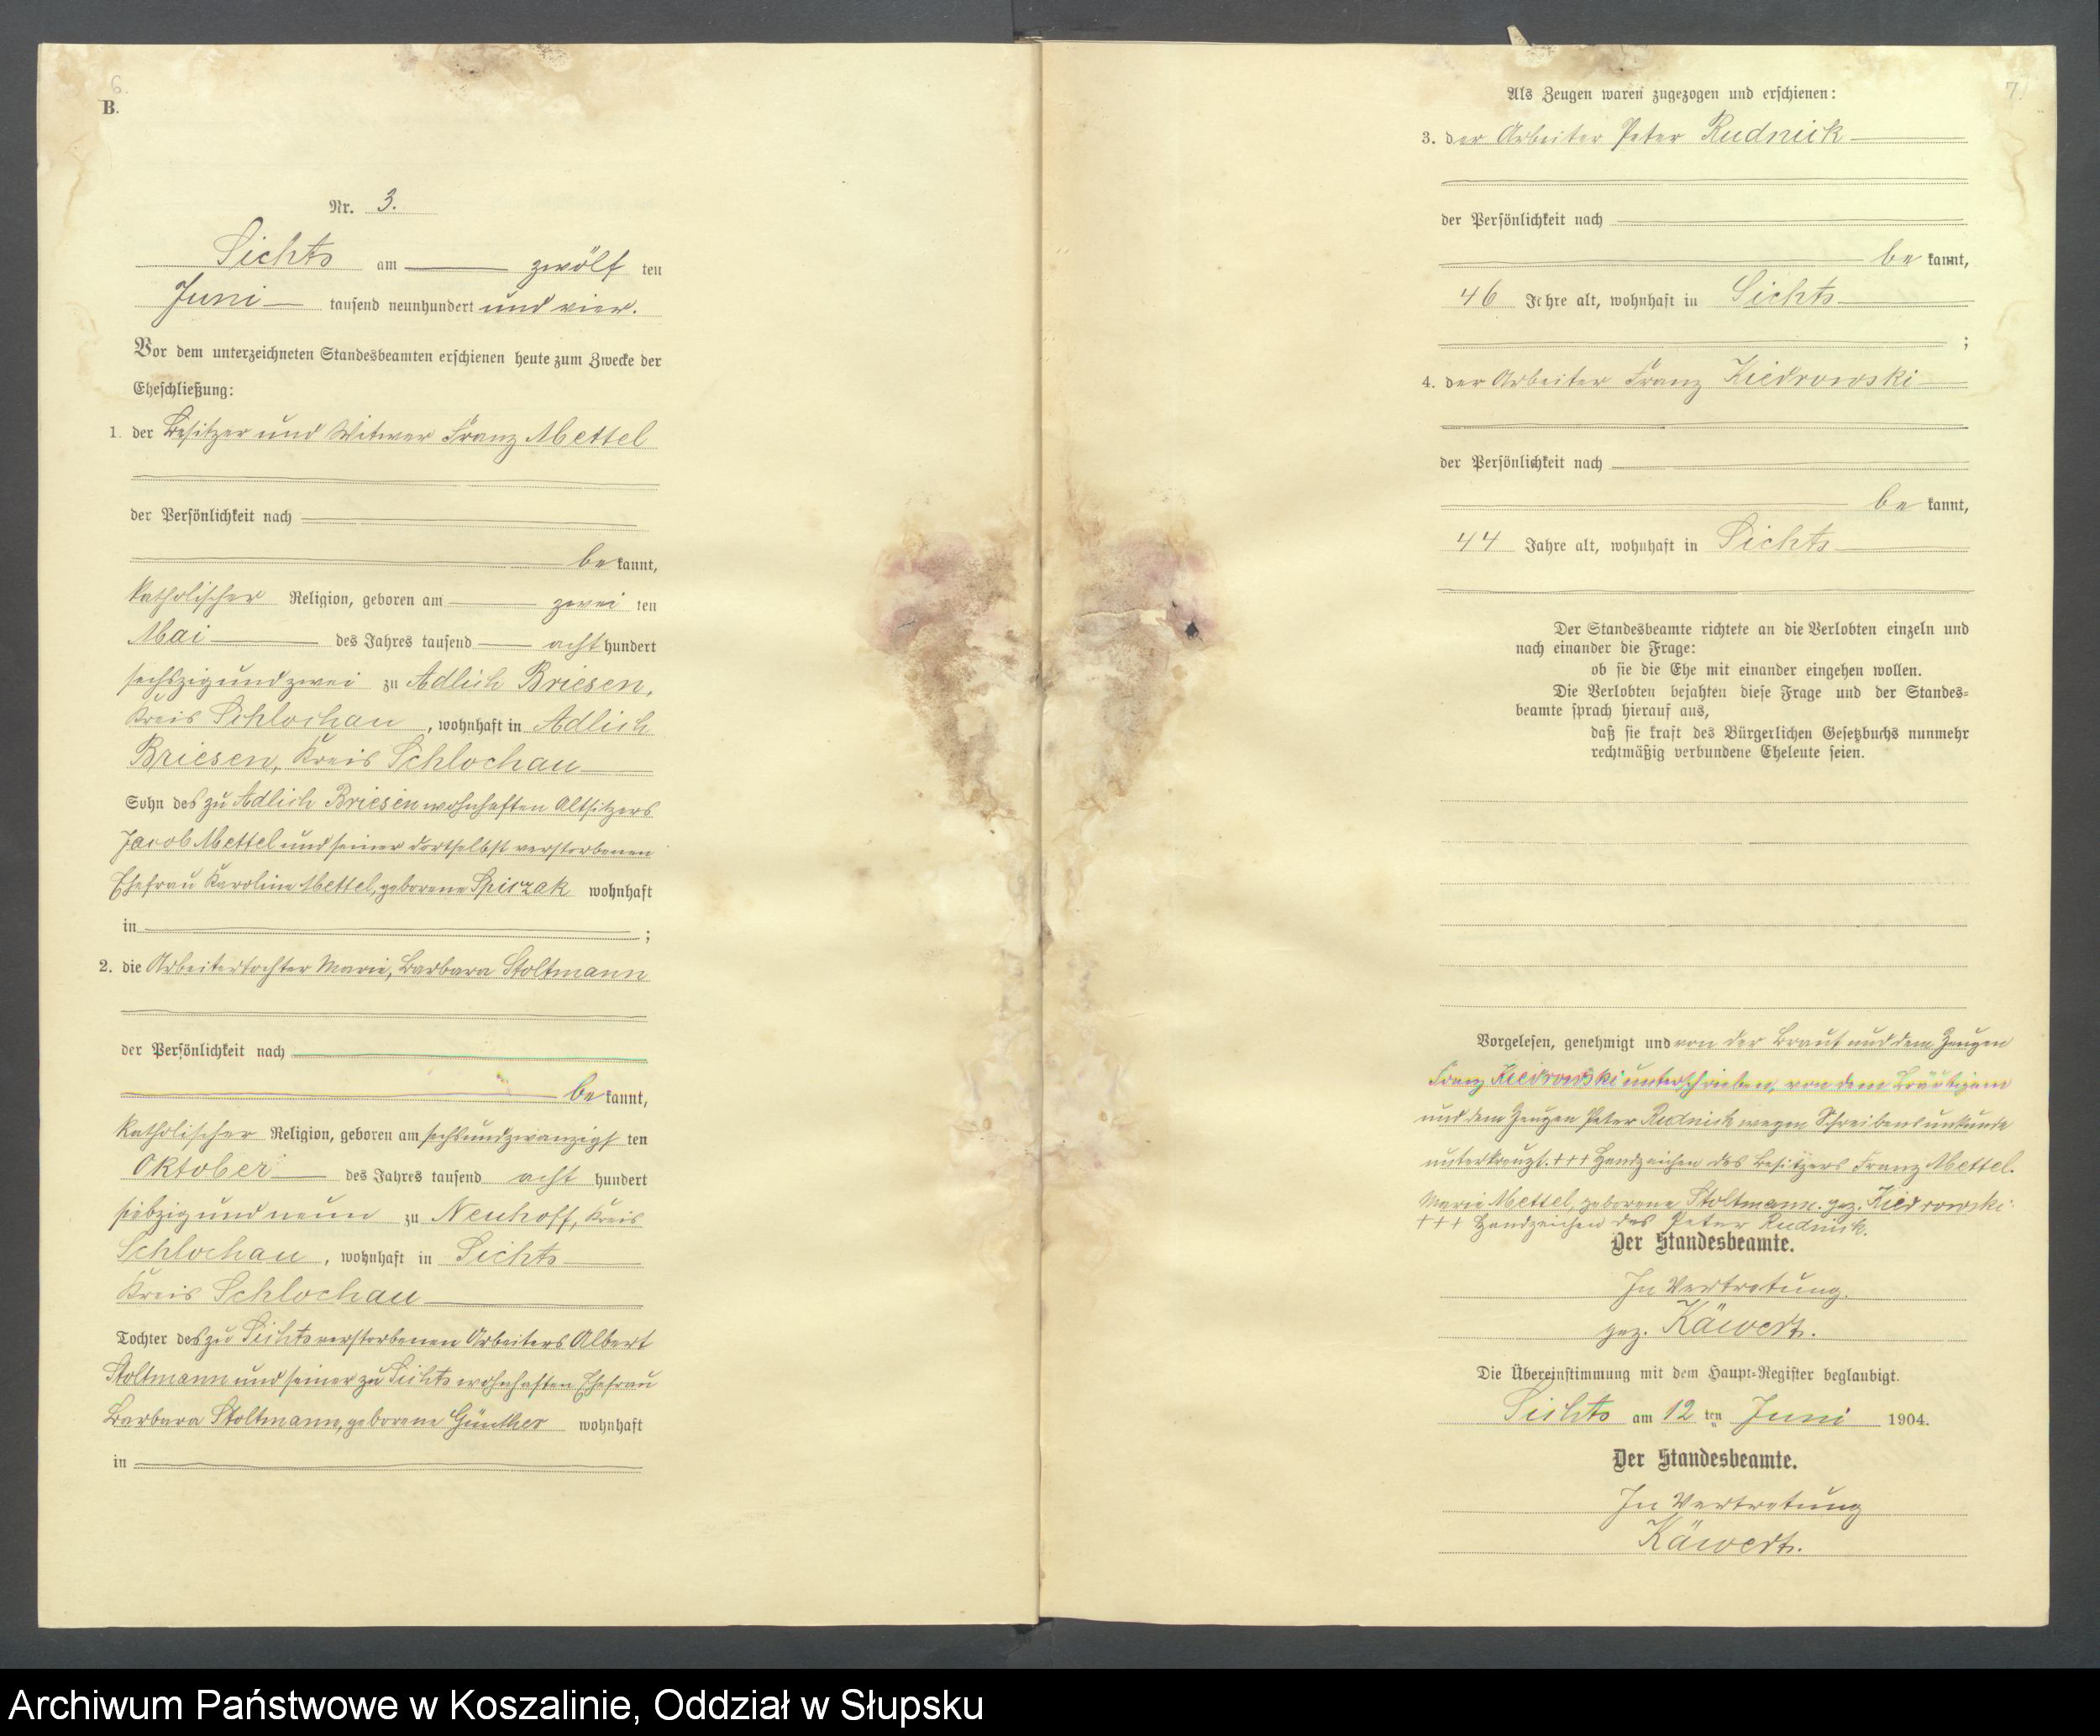 6.
B.
Nr. 3.
Sichts am zwölf ten
Juni tausend neunhundert und vier.
Vor dem unterzeichneten Standesbeamten erschienen heute zum Zwecke der
Eheschließung:
1. der Besitzer und Witwer Franz Mettel
der Persönlichkeit nach
be kannt,
katholischer Religion, geboren am zwei ten
Mai des Jahres tausend acht hundert
sechszig und zwei zu Adlich Briesen,
Kreis Schlochau, wohnhaft in Adlich
Briesen, Kreis Schlochau
Sohn des zu Adlich Briesen wohnhaften Altsitzers
Jacob Mettel und seiner dortselbst verstorbenen
Ehefrau Karoline Mettel, geborene Spiczak wohnhaft
in ;
2. die Arbeitertochter Marie, Barbara Stoltmann
der Persönlichkeit nach
be kannt,
katholischer Religion, geboren am sechsundzwanzigs ten
Oktober des Jahres tausend acht hundert
siebzig und neun zu Neuhoff, Kreis
Schlochau, wohnhaft in Sichts
Kreis Schlochau
Tochter des zu Sichts verstorbenen Arbeiters Albert
Stoltmann und seiner zu Sichts wohnhaften Ehefrau
Barbara Stoltmann, geborene Günther wohnhaft
in
7.
Als Zeugen waren zugezogen und erschienen:
3. der Arbeiter Peter Rudnick
der Persönlichkeit nach
be kannt,
46 Jahre alt, wohnhaft in Sichts
;
4. der Arbeiter Franz Kiedrowski
der Persönlichkeit nach
be kannt,
44 Jahre alt, wohnhaft in Sichts
Der Standesbeamte richtete an die Verlobten einzeln und
nach einander die Frage:
ob sie die Ehe mit einander eingehen wollen.
Die Verlobten bejahten diese Frage und der Standes-
beamte sprach hierauf aus,
daß sie kraft des Bürgerlichen Gesetzbuchs nunmehr
rechtmäßig verbundene Eheleute seien.
Vorgelesen, genehmigt und von der Braut und dem Zeugen
Franz Kiedrowski unterschrieben, von dem Bräutigam
und dem Zeugen Peter Rudnick wegen Schreibensunkunde
unterkreuzt. +++ Handzeichen des Besitzers Franz Mettel.
Marie Mettel, geborene Stoltmann. gez. Kiedrowski.
+++ Handzeichen des Peter Rudnick.
Der Standesbeamte.
In Vertretung.
gez. Käwert.
Die Übereinstimmung mit dem Haupt-Register beglaubigt.
Sichts am 12 ten Juni 1904.
Der Standesbeamte.
In Vertretung
Käwert.
Archiwum Państwowe w Koszalinie, Oddział w Słupsku